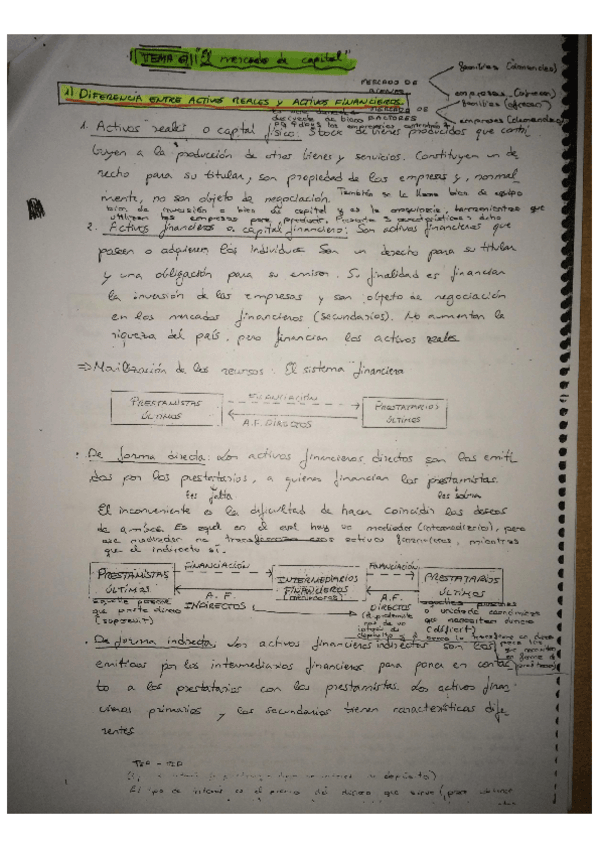 TEMA 6 "El mercado de capital"
MERCADO DE
familias (demandan)
empresas (ofrecen)
1) DIFERENCIA ENTRE ACTIVOS REALES Y ACTIVOS FINANCIEROS.
MERCADO DE
FACTORES
familias (ofrecen)
empresas (demandan)
1. Activos reales o capital físico: Stock de bienes producidos que contri
buyen a la producción de otros bienes y servicios. Constituyen un de
recho para su titular, son propiedad de las empresas y, normal
mente, no son objeto de negociación.
También se le llama bien de equipo
bien de inversión o bien de capital y es la maquinaria, herramientas que
utilizan las empresas para producir.
2. Activos financieros o capital financiero: Son activos financieros que
poseen o adquieren los individuos. Son un derecho para su titular
y una obligación para su emisor. Su finalidad es financiar
la inversión de las empresas y son objeto de negociación
en los mercados financieros (secundarios). No aumentan la
riqueza del país, pero financian los activos reales.
⇒ Movilización de los recursos: El sistema financiero
PRESTAMISTAS ÚLTIMOS
FINANCIACIÓN
A.F. DIRECTOS
PRESTATARIOS ÚLTIMOS
• De forma directa: Los activos financieros directos son los emiti
dos por los prestatarios, a quienes financian los prestamistas.
les falta
les sobra
El inconveniente es la dificultad de hacer coincidir los deseos
de ambos. Es aquel en el cual hay un mediador (intermediario), pero
ese mediador no transforma esos activos financieros, mientras
que el indirecto sí.
PRESTAMISTAS ÚLTIMOS
FINANCIACIÓN
A.F. INDIRECTOS
INTERMEDIARIOS FINANCIEROS
FINANCIACIÓN
A.F. DIRECTOS
PRESTATARIOS ÚLTIMOS
o unidades económicas
que necesitan dinero
• De forma indirecta: Los activos financieros indirectos son los
emitidos por los intermediarios financieros para poner en contac
to a los prestatarios con los prestamistas. Los activos finan
cieros primarios y los secundarios tienen características dife
rentes
El tipo de interés es el precio del dinero que sirve